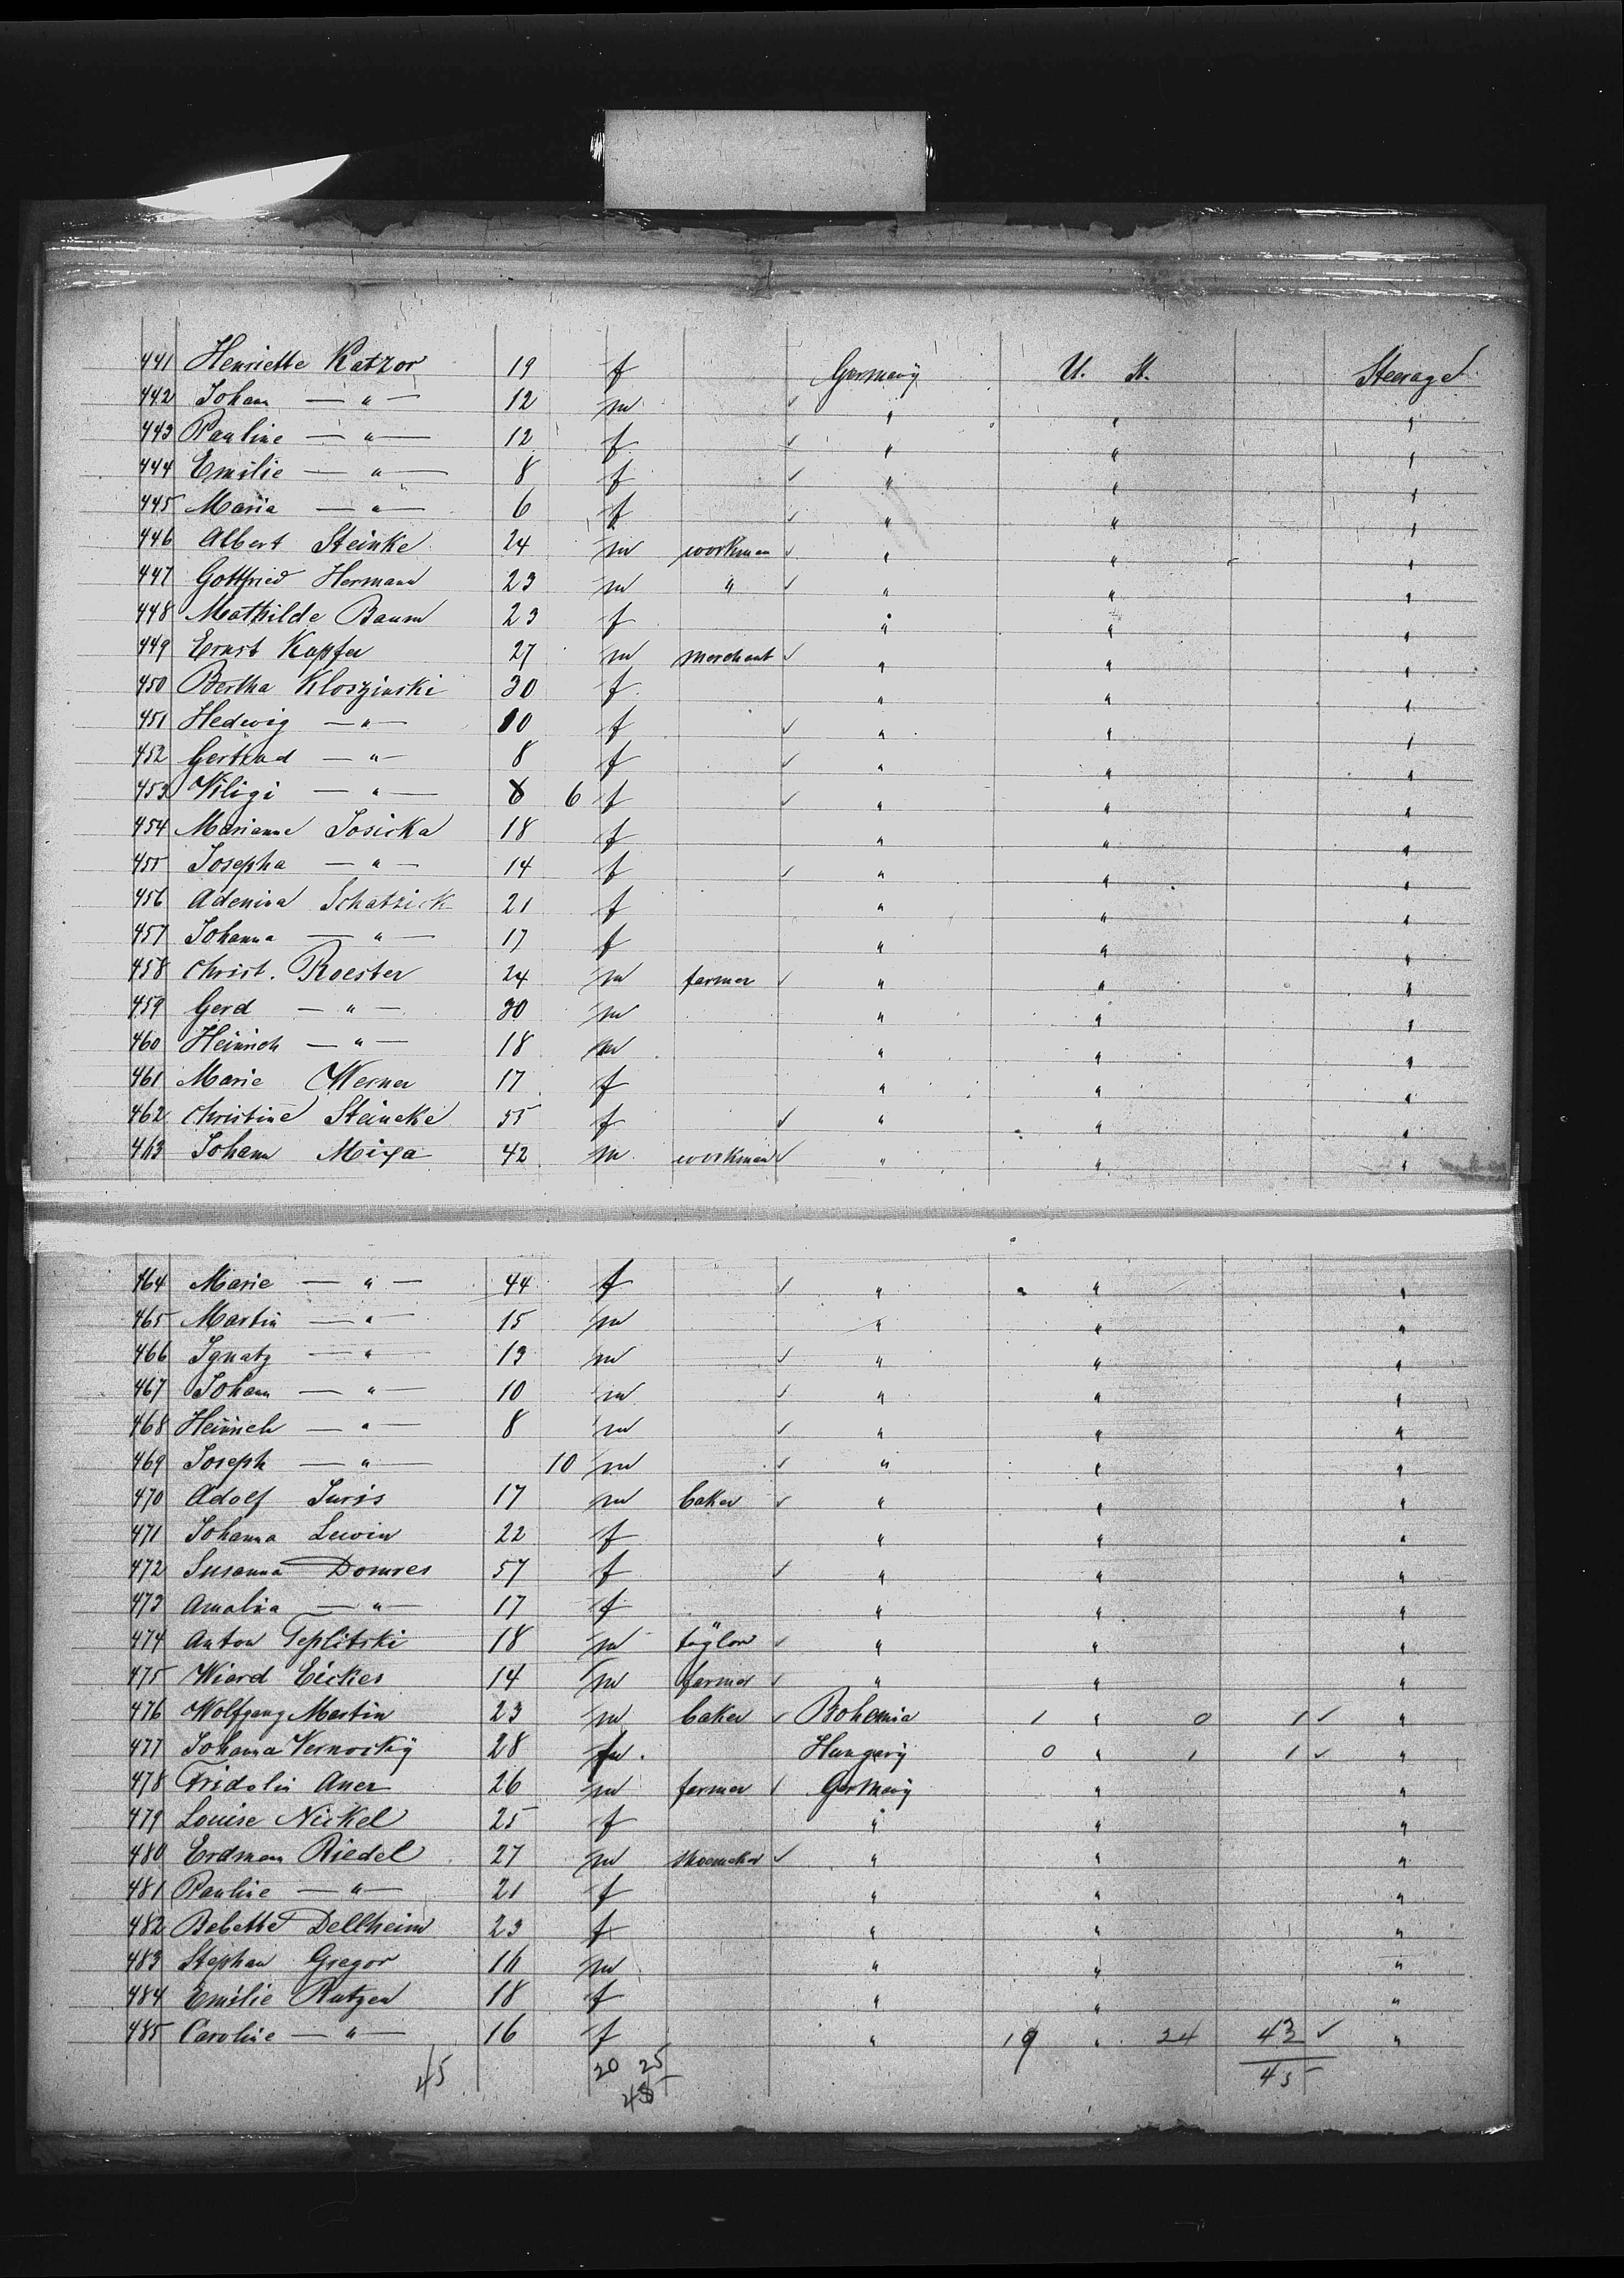 441 Henriette Katzor 19 f Germany U. St. Steerage
442 Johann — " — 12 m " " "
443 Pauline — " — 12 f " " "
444 Emilie — " — 8 f " " "
445 Maria — " — 6 f " " "
446 Albert Steinke 24 m workman " " "
447 Gottfried Hermann 23 m " " " "
448 Mathilde Baum 23 f " " "
449 Ernst Kapfer 27 m merchant " " "
450 Bertha Kloszinski 30 f " " "
451 Hedwig — " — 10 f " " "
452 Gertrud — " — 8 f " " "
453 — " — 6 f " " "
454 Marianne Josicka 18 f " " "
455 Josepha — " — 14 f " " "
456 Schatzick 21 f " " "
457 Johanna — " — 17 f " " "
458 Christ. Roester 24 m farmer " " "
459 Gerd — " — 30 m " " "
460 Heinrich — " — 18 m " " "
461 Marie Werner 17 f " " "
462 Christine Steincke 55 f " " "
463 Johann Mixa 42 m workman " " "
464 Marie — " — 44 f " " "
465 Martin — " — 15 m " " "
466 Ignatz — " — 13 m " " "
467 Johann — " — 10 m " " "
468 Heinrich — " — 8 m " " "
469 Joseph — " — 10 m " " "
470 Adolf Juris 17 m baker " " "
471 Johanna Lewin 22 f " " "
472 Susanna Domres 57 f " " "
473 Amalia — " — 17 f " " "
474 Anton Teplitski 18 m taylor " " "
475 Wiard Eickes 14 m farmer " " "
476 Wolfgang Martin 23 m baker Bohemia 1 " 0 1 "
477 Johanna Vernocky 28 f Hungary 0 " 1 1 "
478 Fridolin Auer 26 m farmer Germany " "
479 Louise Nickel 25 f " " "
480 Erdman Riedel 27 m shoemaker " " "
481 Pauline — " — 21 f " " "
482 Babette Dellheim 23 f " " "
483 Stephan Gregor 16 m " " "
484 Emilie Rutzen 18 f " " "
485 Caroline — " — 16 f " 19 " 24 43 "
45 20 25 45
45